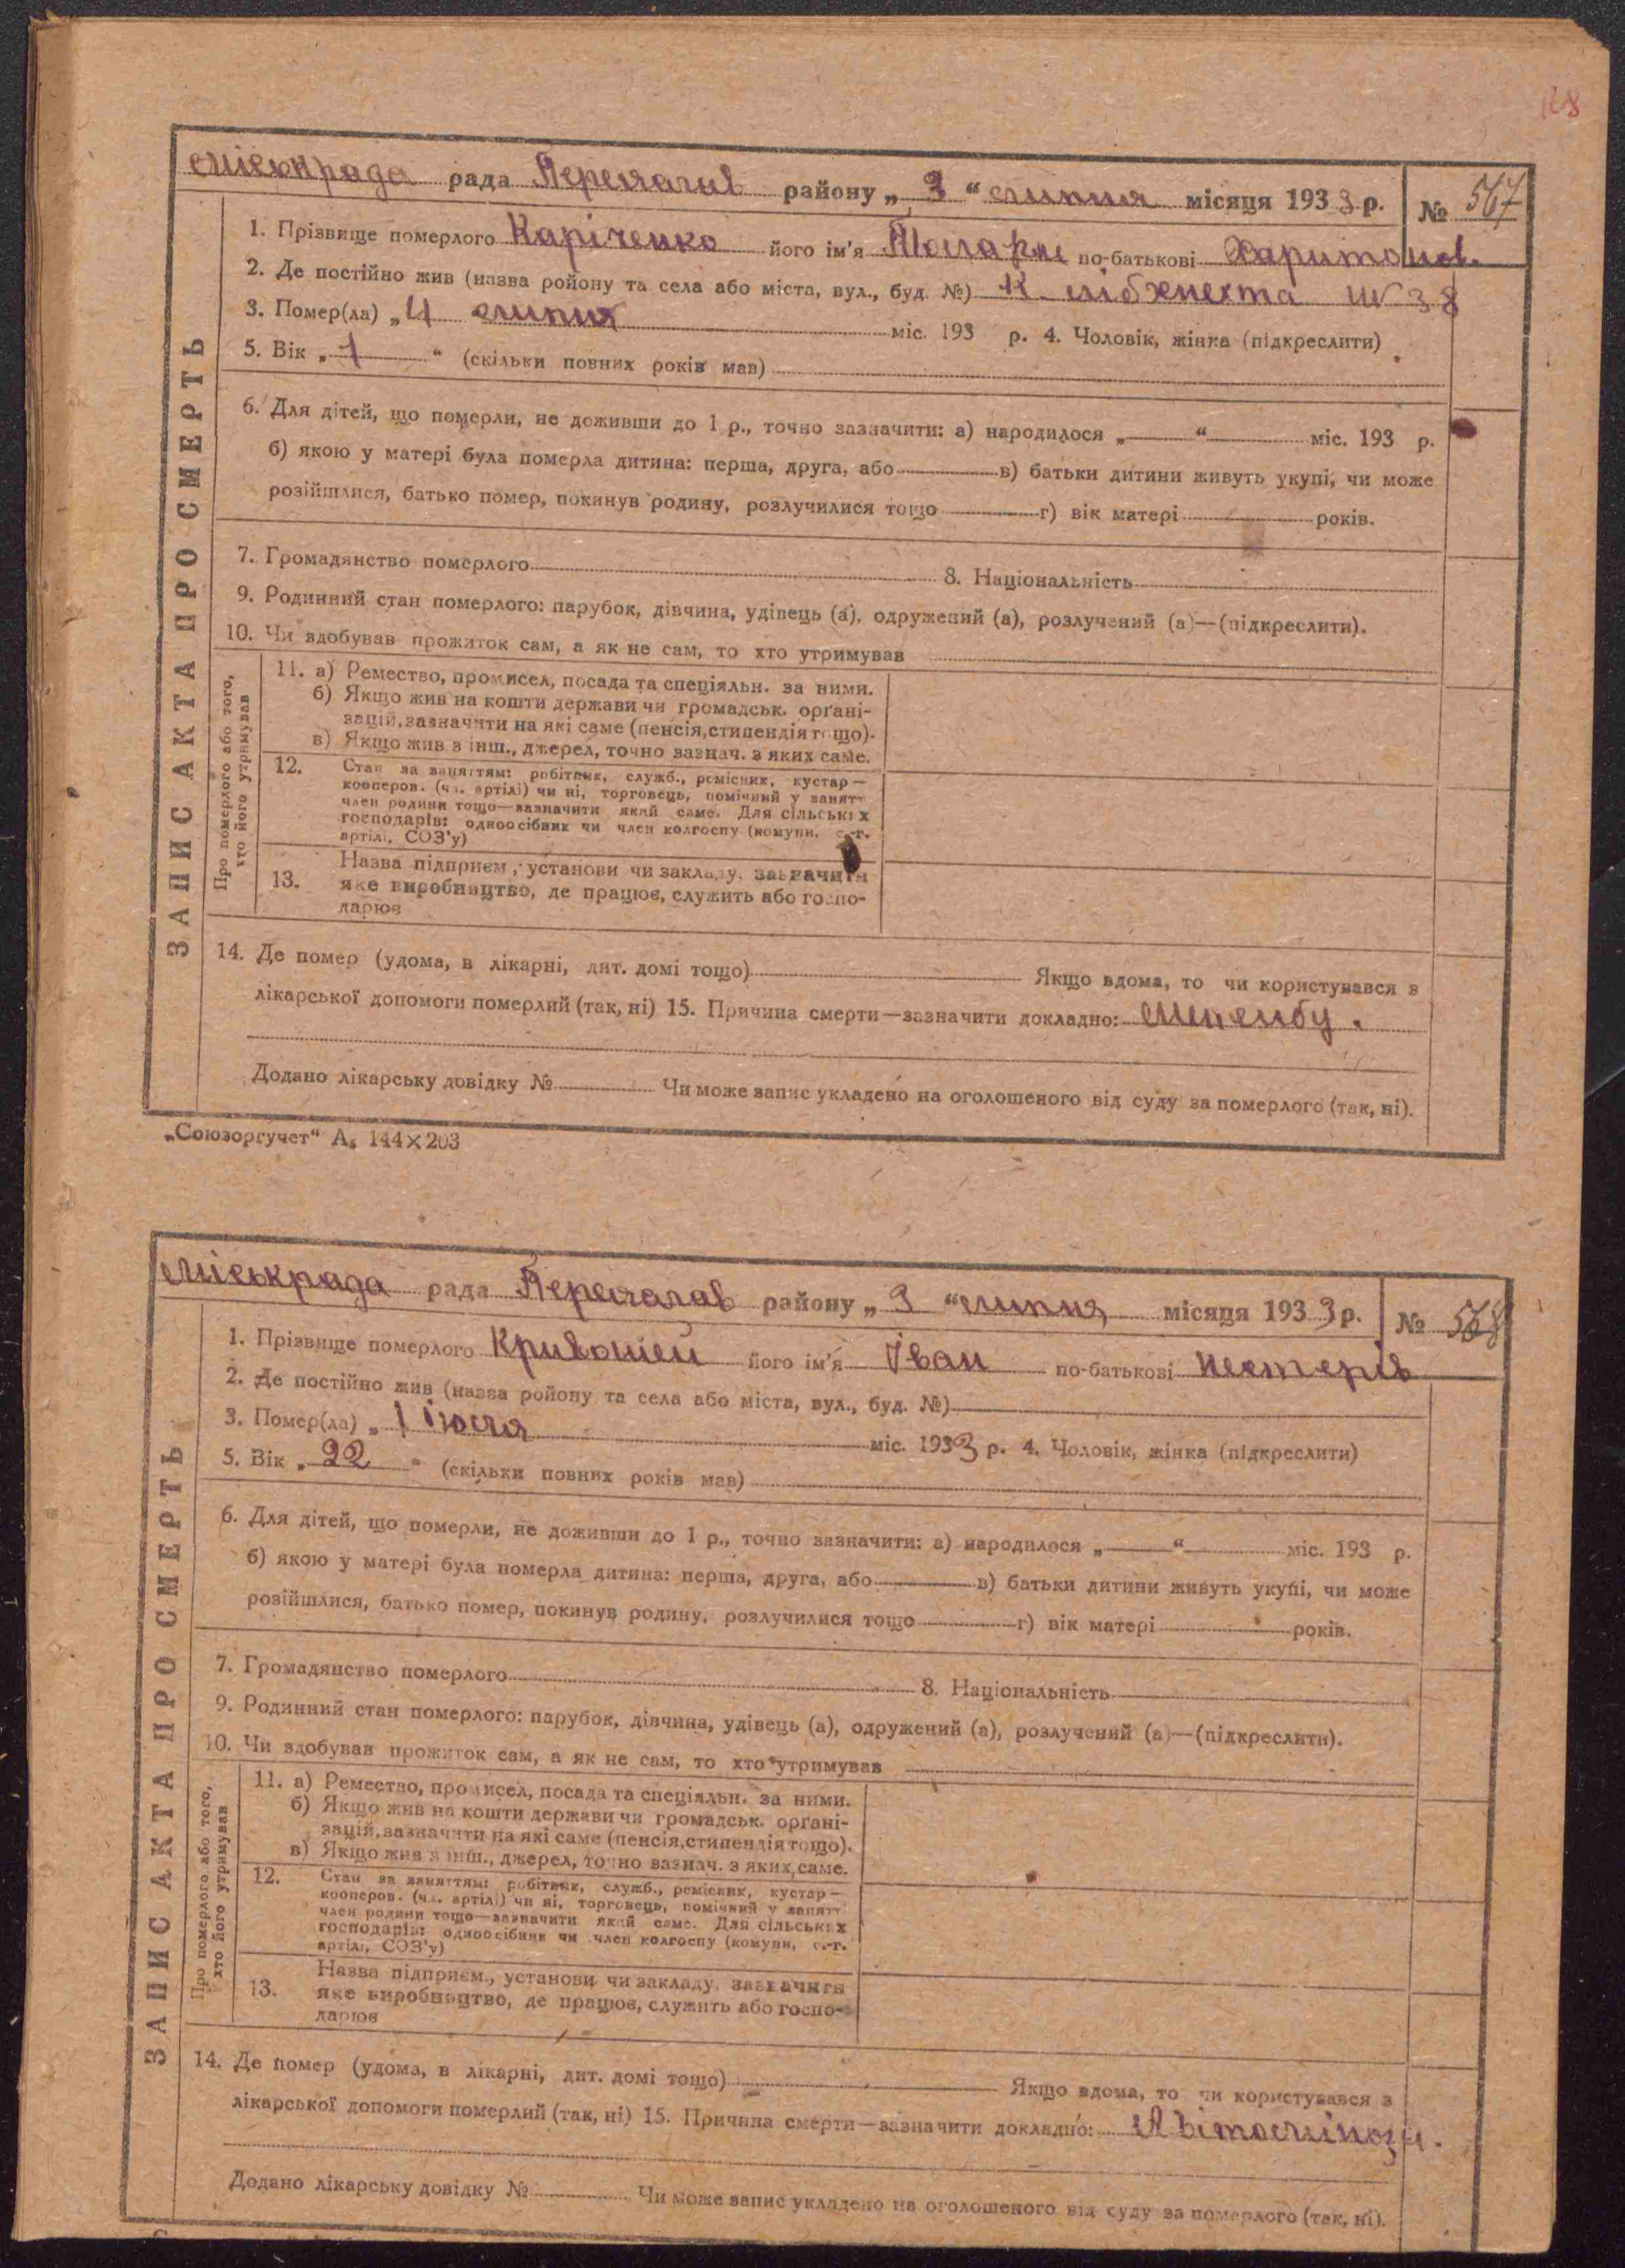 128
міськрада рада Переяслав району „ 3 “ липня місяця 1933 р. № 567
1. Прізвище померлого Каріченко його ім'я по-батькові Харитонов.
2. Де постійно жив (назва ройону та села або міста, вул., буд. №) К. Лібкнехта № 38
3. Помер(ла) „ 4 липня міс. 193 р. 4. Чоловік, жінка (підкреслити)
5. Вік „ 1 “ (скільки повних років мав)
6. Для дітей, що померли, не доживши до 1 р., точно зазначити: а) народилося „ “ міс. 193 р.
б) якою у матері була померла дитина: перша, друга, або в) батьки дитини живуть укупі, чи може
розійшлися, батько помер, покинув родину, розлучилися тощо г) вік матері років.
7. Громадянство померлого 8. Національність
9. Родинний стан померлого: парубок, дівчина, удівець (а), одружений (а), розлучений (а)—(підкреслити).
10. Чи здобував прожиток сам, а як не сам, то хто утримував
Про померлого або того,
хто його утримував
11. а) Ремество, промисел, посада та спеціяльн. за ними.
б) Якщо жив на кошти держави чи громадськ. орґані-
зацій, зазначити на які саме (пенсія, стипендія тощо).
в) Якщо жив з інш., джерел, точно вазнач. з яких саме.
12. Стан за заняттям: робітник, служб., ремісник, кустар—
кооперов. (чл. артілі) чи ні, торговець, помічний у занятт
член родини тощо—зазначити який саме. Для сільських
господарів: одноосібник чи член колгоспу (комуни, с.-г.
артілі, СОЗ'у)
13. Назва підприєм., установи чи закладу, зазначити
яке виробництво, де працює, служить або госпо-
дарює
14. Де помер (удома, в лікарні, дит. домі тощо) Якщо вдома, то чи користувався з
лікарської допомоги померлий (так, ні) 15. Причина смерти—зазначити докладно:
Додано лікарську довідку № Чи може запис укладено на оголошеного від суду за померлого (так, ні).
ЗАПИС АКТА ПРО СМЕРТЬ
„Союзоргучет“ А₅ 144×203
міськрада рада Переяслав району „ 3 “ липня місяця 1933 р. № 568
1. Прізвище померлого Кривошей його ім'я Іван по-батькові Нестерів
2. Де постійно жив (назва ройону та села або міста, вул., буд. №)
3. Помер(ла) „ 1 іюля міс. 1933 р. 4. Чоловік, жінка (підкреслити)
5. Вік „ 22 “ (скільки повних років мав)
6. Для дітей, що померли, не доживши до 1 р., точно зазначити: а) народилося „ “ міс. 193 р.
б) якою у матері була померла дитина: перша, друга, або в) батьки дитини живуть укупі, чи може
розійшлися, батько помер, покинув родину, розлучилися тощо г) вік матері років.
7. Громадянство померлого 8. Національність
9. Родинний стан померлого: парубок, дівчина, удівець (а), одружений (а), розлучений (а)—(підкреслити).
10. Чи здобував прожиток сам, а як не сам, то хто утримував
Про померлого або того,
хто його утримував
11. а) Ремество, промисел, посада та спеціяльн. за ними.
б) Якщо жив на кошти держави чи громадськ. орґані-
зацій, зазначити на які саме (пенсія, стипендія тощо).
в) Якщо жив з інш., джерел, точно вазнач. з яких саме.
12. Стан за заняттям: робітник, служб., ремісник, кустар—
кооперов. (чл. артілі) чи ні, торговець, помічний у занятт
член родини тощо—зазначити який саме. Для сільських
господарів: одноосібник чи член колгоспу (комуни, с.-г.
артілі, СОЗ'у)
13. Назва підприєм., установи чи закладу, зазначити
яке виробництво, де працює, служить або госпо-
дарює
14. Де помер (удома, в лікарні, дит. домі тощо) Якщо вдома, то чи користувався з
лікарської допомоги померлий (так, ні) 15. Причина смерти—зазначити докладно: Авітомінози.
Додано лікарську довідку № Чи може запис укладено на оголошеного від суду за померлого (так, ні).
ЗАПИС АКТА ПРО СМЕРТЬ